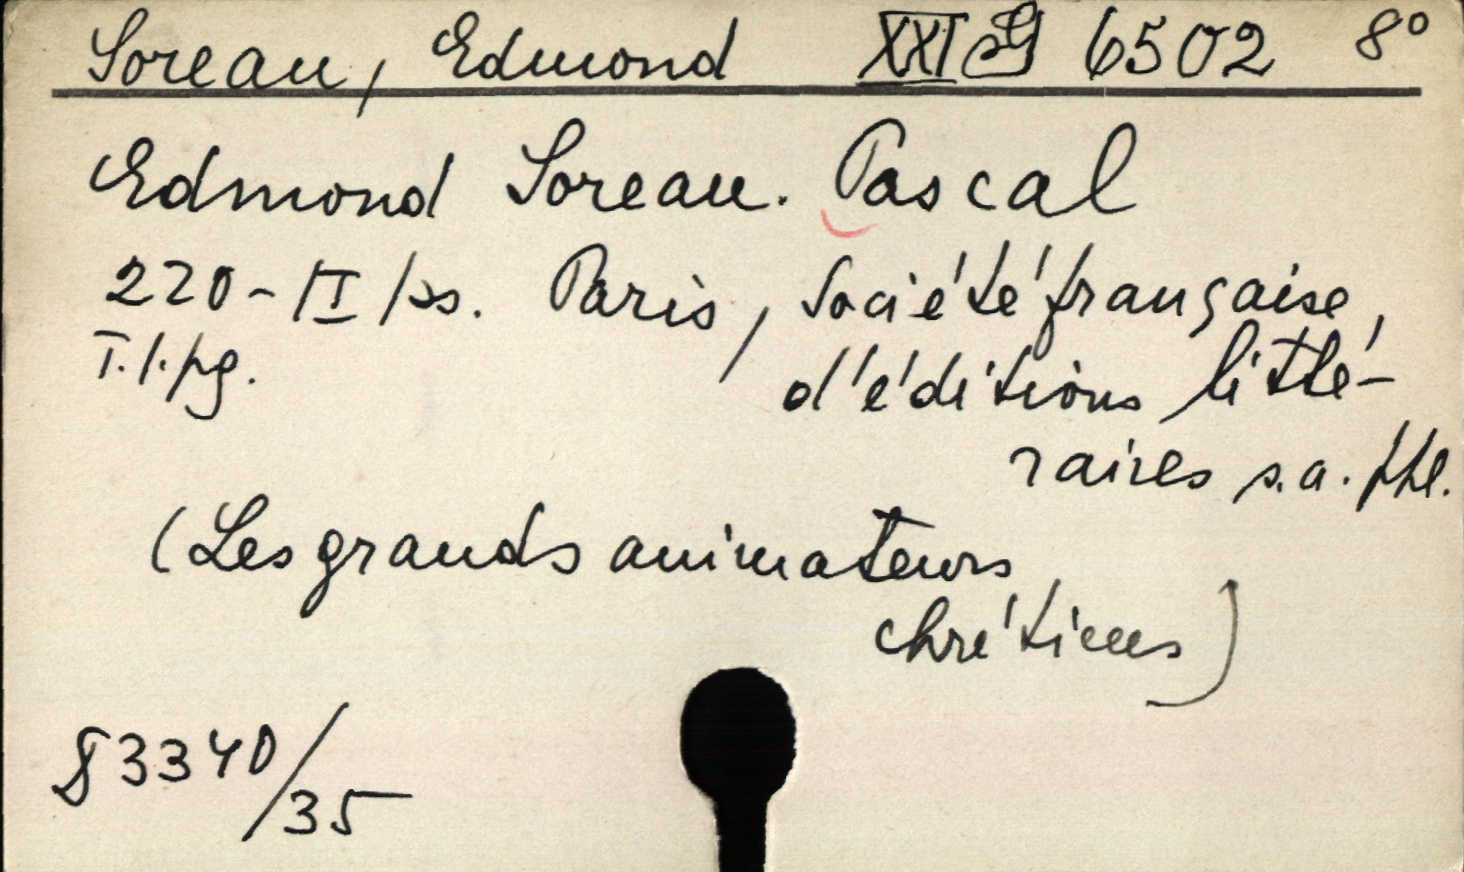 Soreau, Edmond XXI G 6502 8°
Edmond Soreau. Pascal
220 - II ps. Paris, Société française,
T. 1. pg.
d'éditions litté-
raires s.a.
(Les grands animateurs
chrétiens)
83340/35